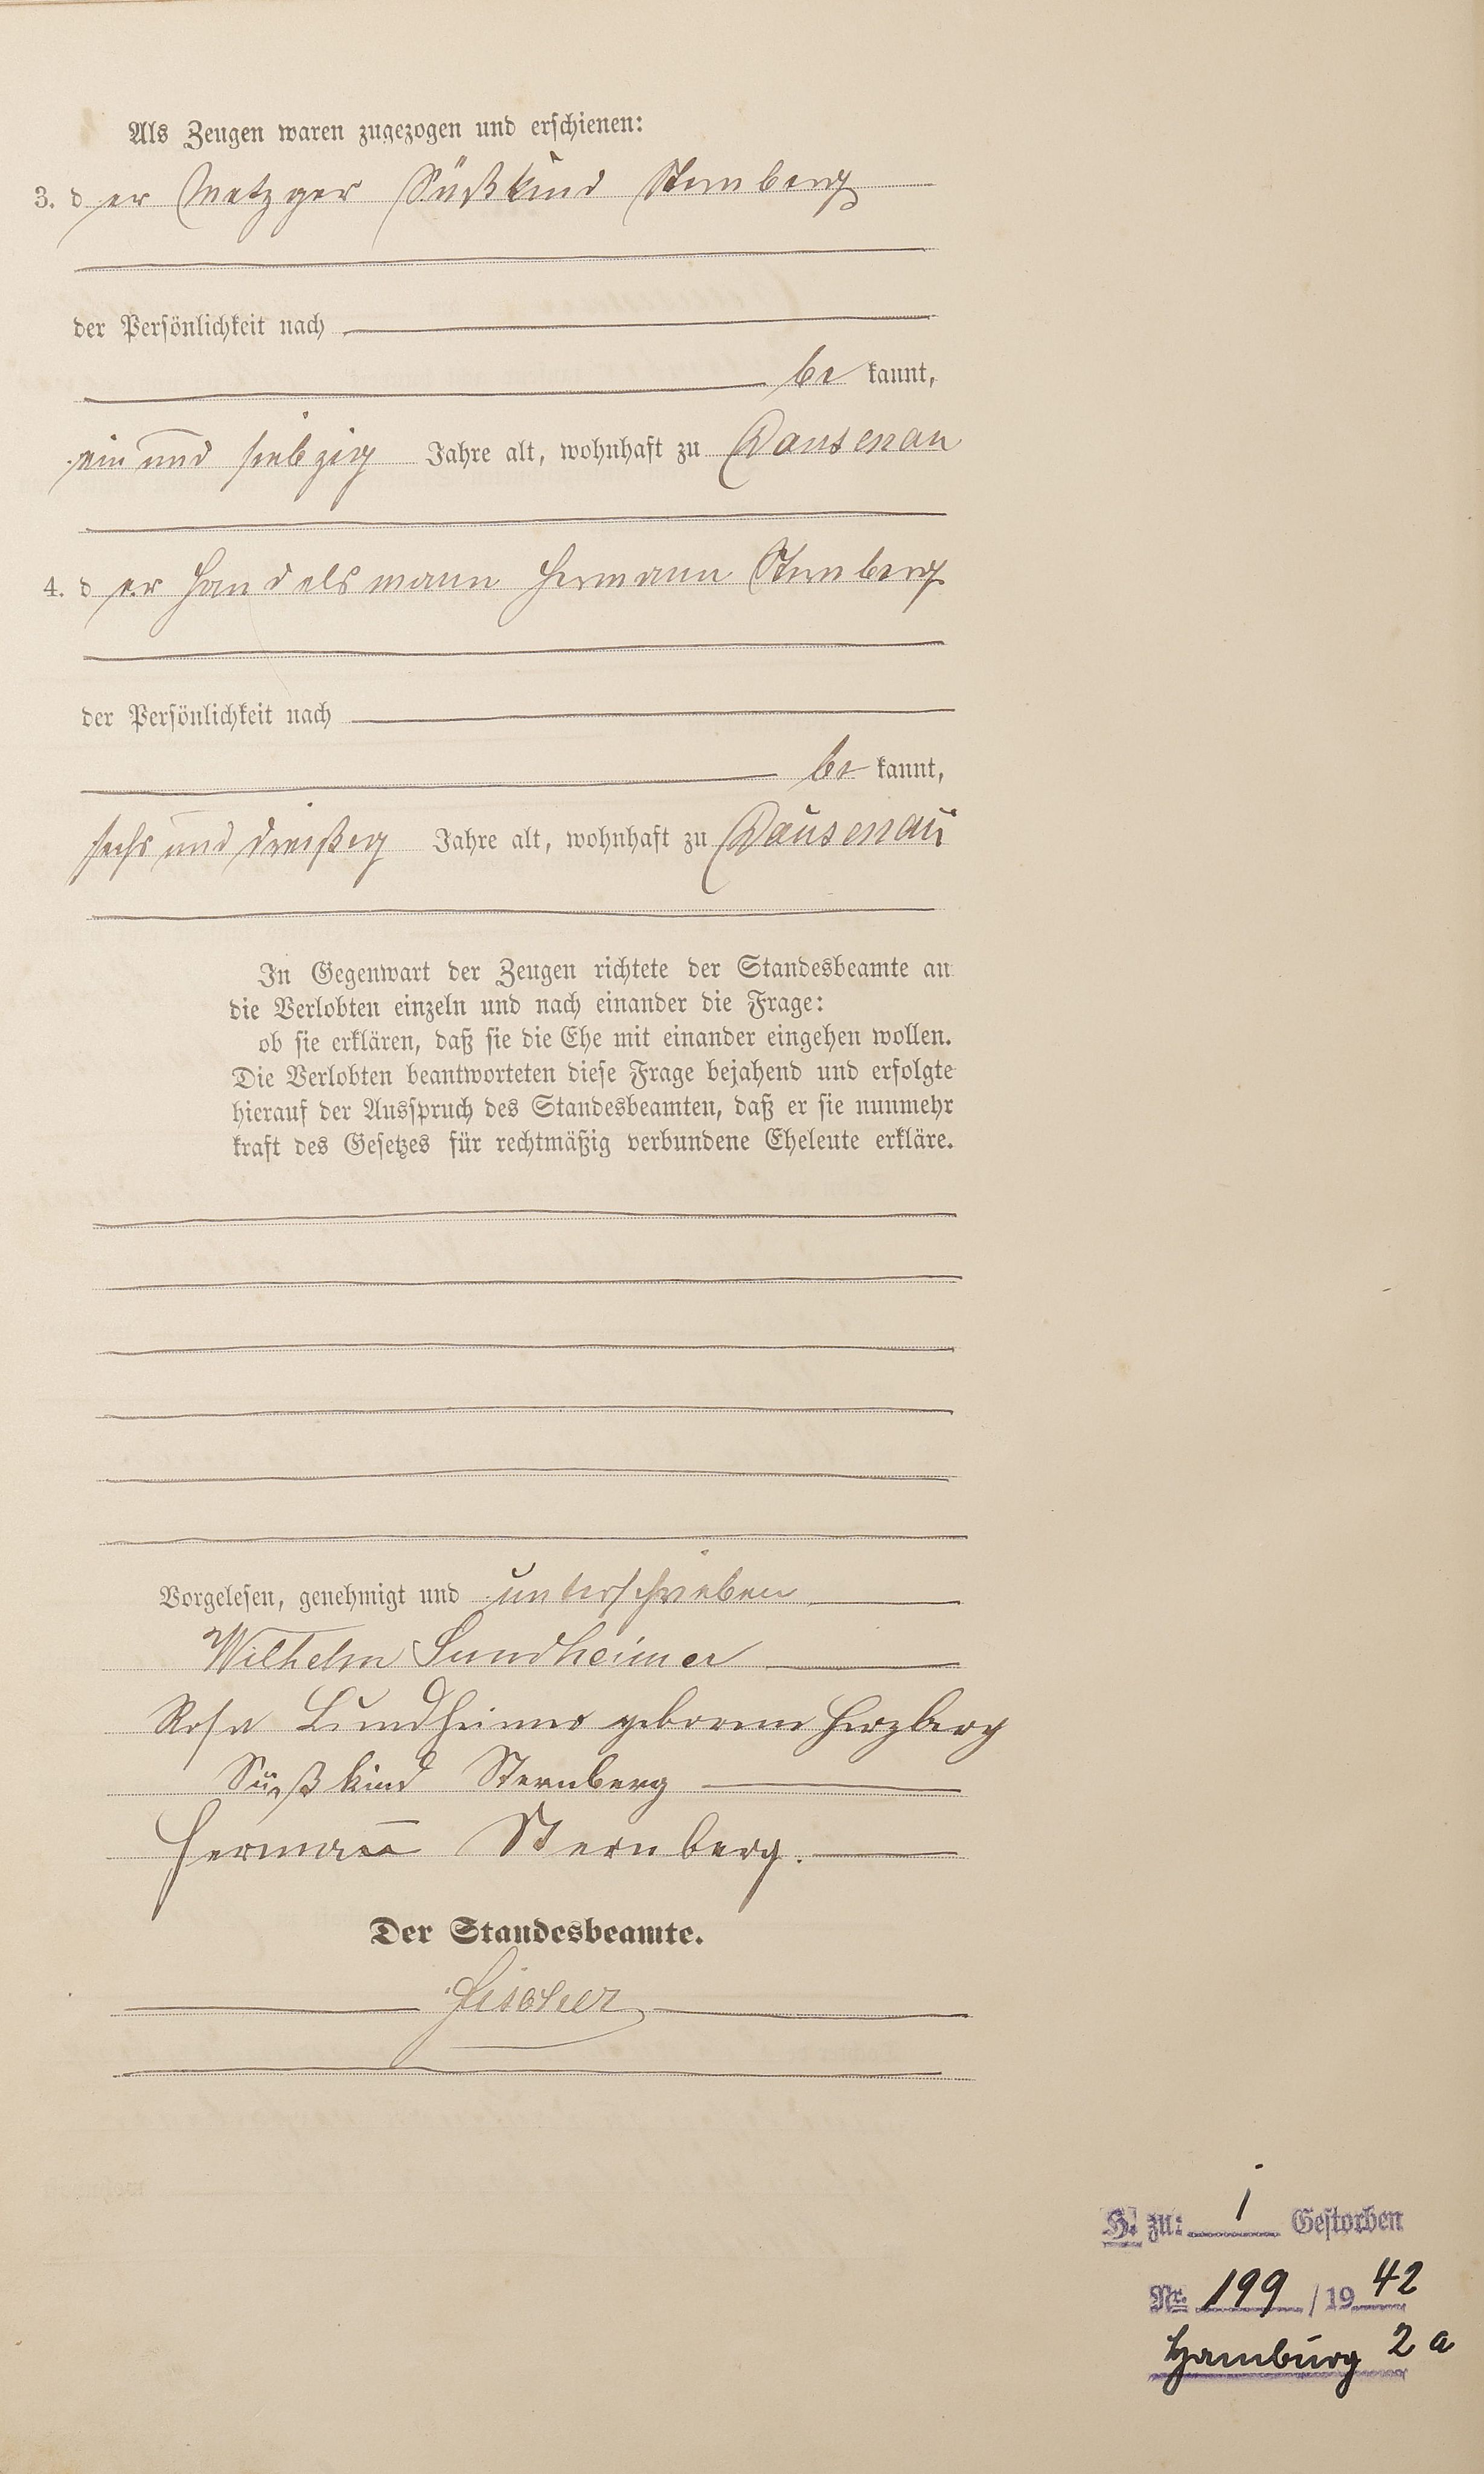 Als Zeugen waren zugezogen und erschienen:
3. der Metzger Süßkind Sternberg
der Persönlichkeit nach
be kannt,
ein und siebzig Jahre alt, wohnhaft zu Dausenau
4. der Handelsmann Hermann Sternberg
der Persönlichkeit nach
be kannt,
sechs und dreißig Jahre alt, wohnhaft zu Dausenau
In Gegenwart der Zeugen richtete der Standesbeamte an
die Verlobten einzeln und nach einander die Frage:
ob sie erklären, daß sie die Ehe mit einander eingehen wollen.
Die Verlobten beantworteten diese Frage bejahend und erfolgte
hierauf der Ausspruch des Standesbeamten, daß er sie nunmehr
kraft des Gesetzes für rechtmäßig verbundene Eheleute erkläre.
Vorgelesen, genehmigt und unterschrieben
Wilhelm Sundheimer
Rosa Sundheimer geborene Herzberg
Süßkind Sternberg
Hermann Sternberg.
Der Standesbeamte.
Fischer
H. zu: 1 Gestorben
Nr. 199 / 1942
Hamburg 2a